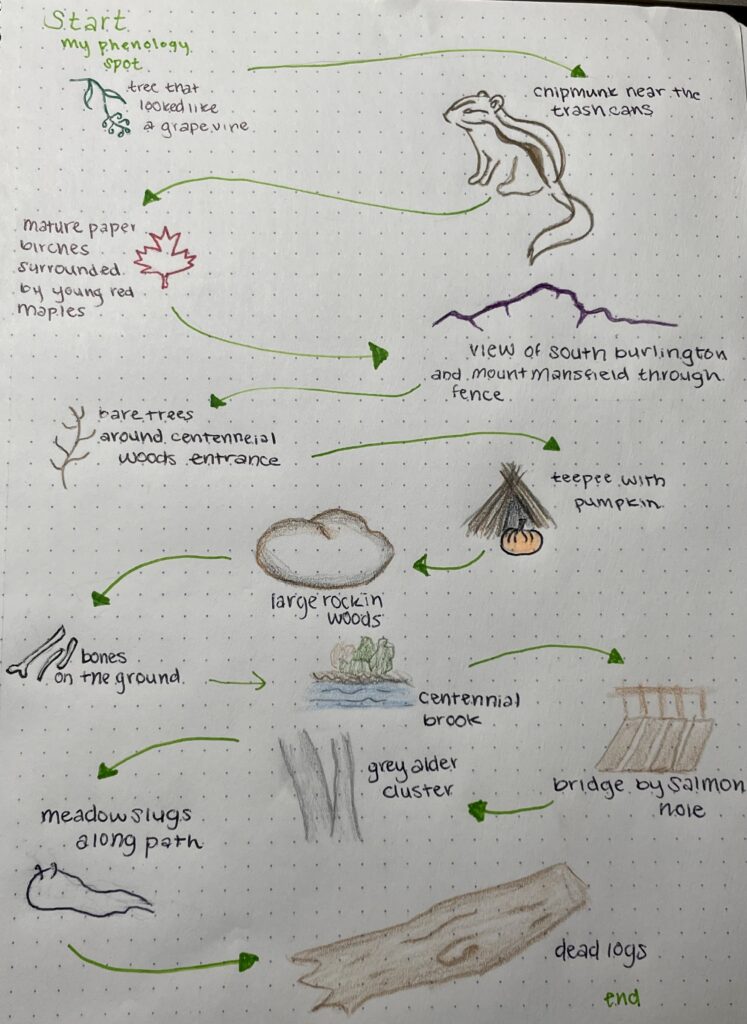 Start
my phenology
spot
tree that
looked like
a grapevine
chipmunk near the
trash cans
mature paper
birches
surrounded
by young red
maples
view of south burlington
and mount mansfield through
fence
bare trees
around centenneial
woods entrance
teepee with
pumpkin
large rock in
woods
bones
on the ground
centennial
brook
bridge by Salmon
hole
grey alder
cluster
meadow slugs
along path
dead logs
end